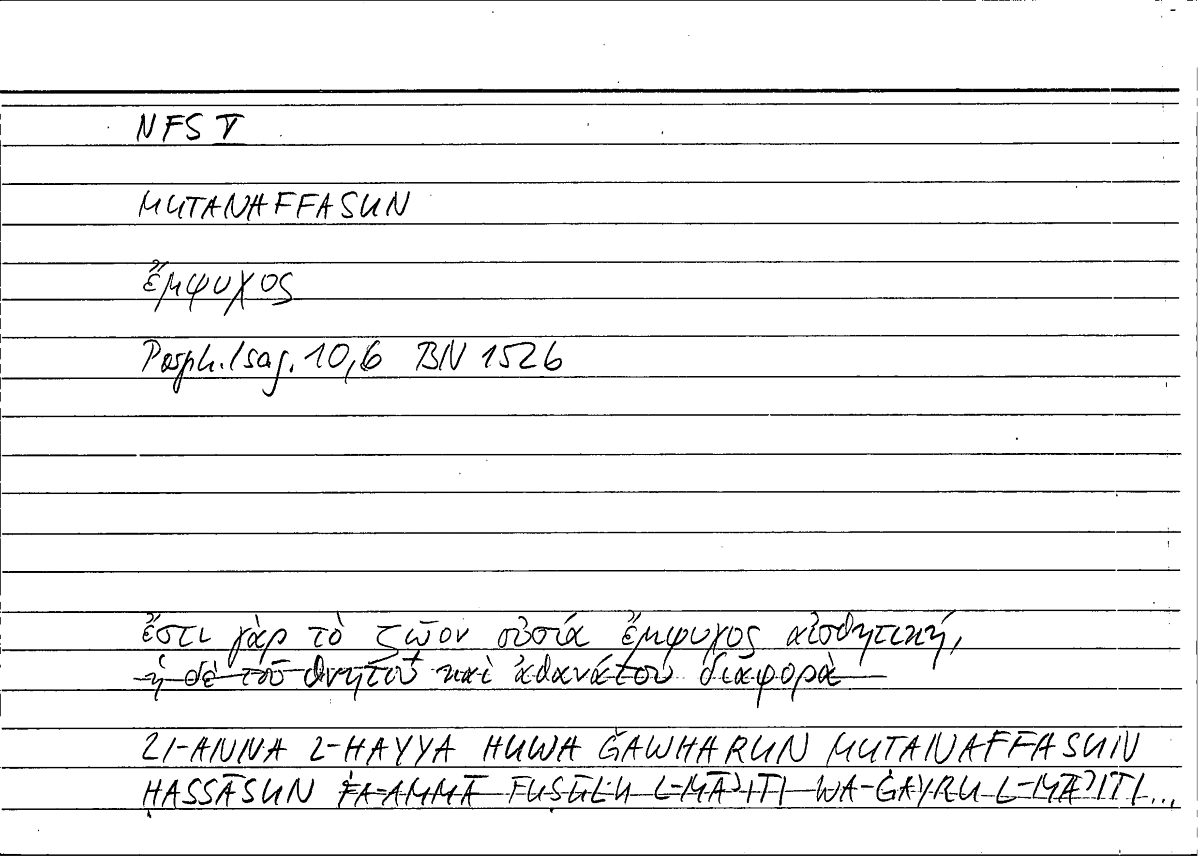 NFS V
MUTANAFFASUN
ἔμψυχος
Porph. Isag. 10,6 BN 152b
ἔστι γὰρ τὸ ζῷον οὐσία ἔμψυχος αἰσθητική,
ἡ δὲ τοῦ θνητοῦ καὶ ἀθανάτου διαφορὰ
LI-ANNA L-ḤAYYA HUWA ĞAWHARUN MUTANAFFASUN
ḤASSĀSUN FA-AMMĀ FUṢŪLU L-MĀʾITI WA-ĠAYRU L-MĀʾITI...